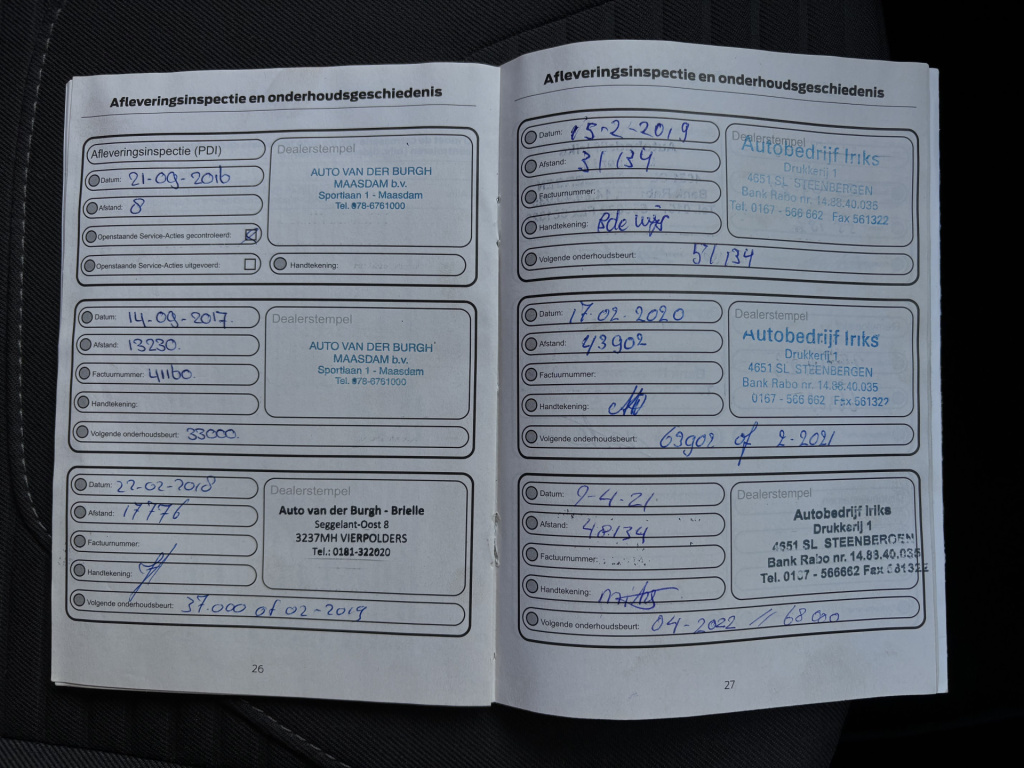 Afleveringsinspectie en onderhoudsgeschiedenis
Afleveringsinspectie (PDI)
Datum: 21-09-2016
Afstand: 8
Openstaande Service-Acties gecontroleerd:
Openstaande Service-Acties uitgevoerd:
Dealerstempel
AUTO VAN DER BURGH
MAASDAM b.v.
Sportlaan 1 - Maasdam
Tel. 078-6761000
Handtekening:
Datum: 14-09-2017.
Afstand: 13230.
Factuurnummer: 41160.
Handtekening:
Dealerstempel
AUTO VAN DER BURGH
MAASDAM b.v.
Sportlaan 1 - Maasdam
Tel. 078-6761000
Volgende onderhoudsbeurt: 33000.
Datum: 22-02-2018
Afstand: 17776
Factuurnummer:
Handtekening:
Dealerstempel
Auto van der Burgh - Brielle
Seggelant-Oost 8
3237MH VIERPOLDERS
Tel.: 0181-322020
Volgende onderhoudsbeurt: 37.000 of 02-2019
26
Afleveringsinspectie en onderhoudsgeschiedenis
Datum: 15-2-2019
Afstand: 31134
Factuurnummer:
Handtekening:
Dealerstempel
Autobedrijf Iriks
Drukkerij 1
4651 SL STEENBERGEN
Bank Rabo nr. 14.88.40.035
Tel. 0167 - 566 662 Fax 561322
Volgende onderhoudsbeurt: 51.134
Datum: 17.02.2020
Afstand: 43902
Factuurnummer:
Handtekening:
Dealerstempel
Autobedrijf Iriks
Drukkerij 1
4651 SL STEENBERGEN
Bank Rabo nr. 14.88.40.035
0167 - 566 662 Fax 561322
Volgende onderhoudsbeurt: 63902 of 2-2021
Datum: 9-4-21.
Afstand: 48134
Factuurnummer:
Handtekening:
Dealerstempel
Autobedrijf Iriks
Drukkerij 1
4651 SL STEENBERGEN
Bank Rabo nr. 14.88.40.035
Tel. 0167 - 566662 Fax 561322
Volgende onderhoudsbeurt: 04-2022 // 68000
27